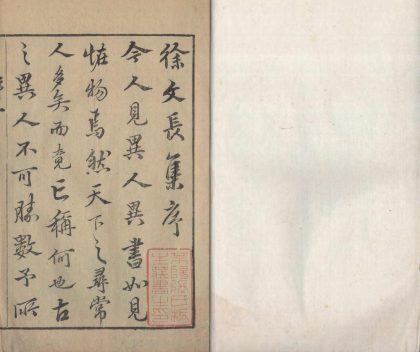 徐文長集序
今人見異人異書如見
恠物焉然天下之尋常
人多矣而竟已稱何也古
之異人不可勝數予所